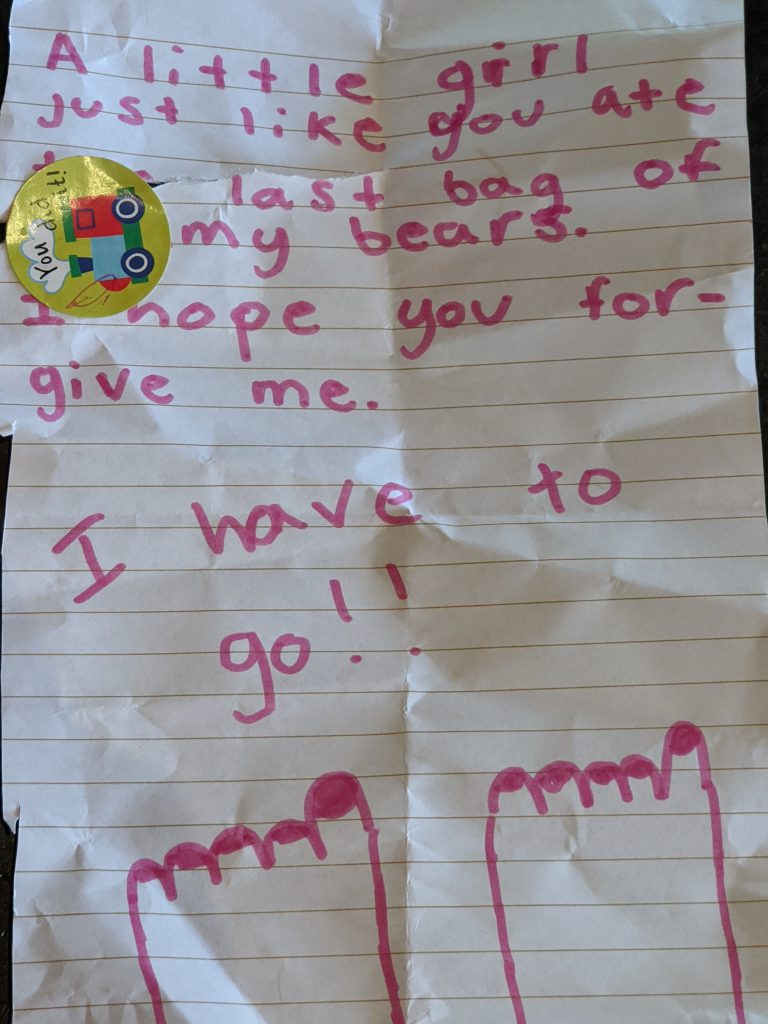 A little girl
just like you ate
last bag of
my bears.
You
did it!
I hope you for-
give me.
I have to
go!!